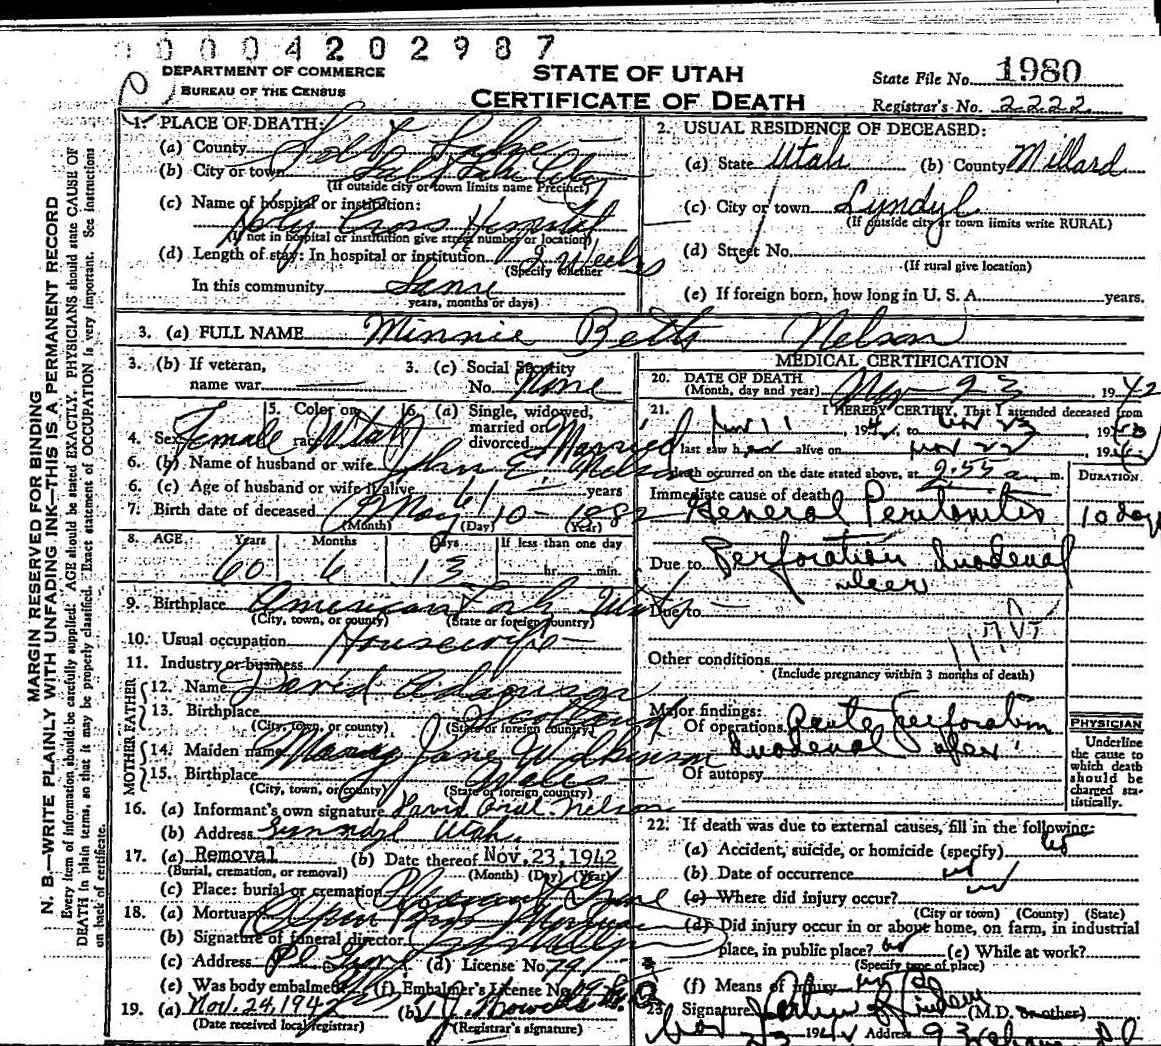 00004202987
DEPARTMENT OF COMMERCE
BUREAU OF THE CENSUS
STATE OF UTAH
CERTIFICATE OF DEATH
State File No. 1980
Registrar's No. 2222
MARGIN RESERVED FOR BINDING
N. B.—WRITE PLAINLY WITH UNFADING INK—THIS IS A PERMANENT RECORD
Every item of information should be carefully supplied. AGE should be stated EXACTLY. PHYSICIANS should state CAUSE OF
DEATH in plain terms, so that it may be properly classified. Exact statement of OCCUPATION is very important. See instructions
on back of certificate.
1. PLACE OF DEATH:
(a) County Salt Lake
(b) City or town Salt Lake City
(If outside city or town limits name Precinct)
(c) Name of hospital or institution:
Holy Cross Hospital
(If not in hospital or institution give street number or location)
(d) Length of stay: In hospital or institution 2 Weeks
(Specify whether
In this community Same
years, months or days)
2. USUAL RESIDENCE OF DECEASED:
(a) State Utah (b) County Millard
(c) City or town Lyndyl
(If outside city or town limits write RURAL)
(d) Street No.
(If rural give location)
(e) If foreign born, how long in U. S. A. years.
3. (a) FULL NAME Minnie Betts Nelson
3. (b) If veteran,
name war
3. (c) Social Security
No. None
4. Sex Female
5. Color or
race
6. (a) Single, widowed,
married or
divorced Married
6. (b) Name of husband or wife John E. Nelson
6. (c) Age of husband or wife if alive 61 years
7. Birth date of deceased May 10 - 1882
(Month) (Day) (Year)
8. AGE Years Months Days If less than one day
60 6 13 hr. min.
9. Birthplace American Fork Utah
(City, town, or county) (State or foreign country)
10. Usual occupation Housewife
11. Industry or business
FATHER
12. Name David Adamson
13. Birthplace Scotland
(City, town, or county) (State or foreign country)
MOTHER
14. Maiden name Mary Jane Wilkinson
15. Birthplace Wales
(City, town, or county) (State or foreign country)
16. (a) Informant's own signature David Nelson
(b) Address Lynndyl Utah.
17. (a) Removal (b) Date thereof Nov. 23, 1942
(Burial, cremation, or removal) (Month) (Day) (Year)
(c) Place: burial or cremation Pleasant Grove
18. (a) Mortuary
(b) Signature of funeral director
(c) Address (d) License No. 791
(e) Was body embalmed? (f) Embalmer's License No.
19. (a) Nov. 24, 1942 (b)
(Date received local registrar) (Registrar's signature)
MEDICAL CERTIFICATION
20. DATE OF DEATH
(Month, day and year) Nov 23 1942
21. I HEREBY CERTIFY, That I attended deceased from
Nov 11, 194 , to Nov 23, 19
last saw h alive on Nov 22, 19
death occurred on the date stated above, at 2:55 a m.
DURATION
Immediate cause of death
General Peritonitis 10 days
Due to Perforation duodenal
ulcer
Due to
Other conditions
(Include pregnancy within 3 months of death)
Major findings:
Of operations Acute perforation
duodenal ulcer
Of autopsy
PHYSICIAN
Underline
the cause to
which death
should be
charged sta-
tistically.
22. If death was due to external causes, fill in the following:
(a) Accident, suicide, or homicide (specify) no
(b) Date of occurrence
(c) Where did injury occur?
(City or town) (County) (State)
(d) Did injury occur in or about home, on farm, in industrial
place, in public place? no (e) While at work?
(Specify type of place)
(f) Means of Injury
23. Signature (M.D. or other)
Nov 23 194 Address